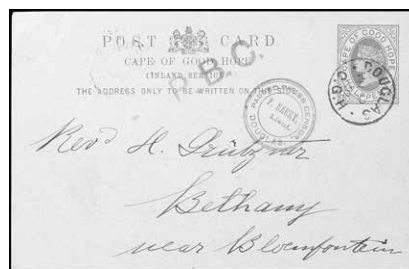 POST CARD
CAPE OF GOOD HOPE
(INLAND SERVICE)
THE ADDRESS ONLY TO BE WRITTEN ON THIS SIDE
P.B.C.
CAPE OF GOOD HOPE
DOUGLAS
H.G.
DOUGLAS
Revd H. Grützner
Bethany
near Bloemfontein